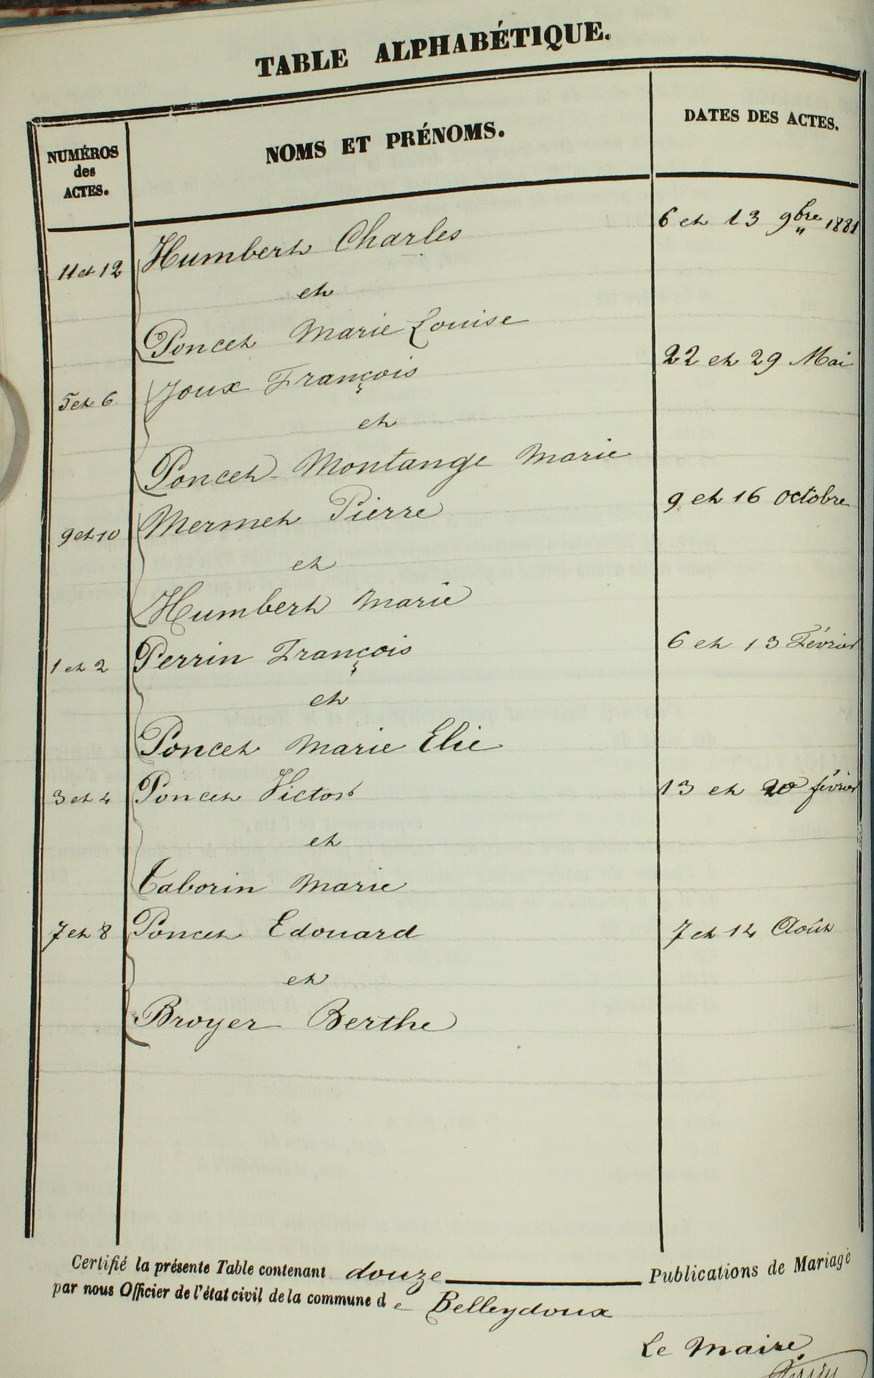 TABLE ALPHABÉTIQUE.
NUMÉROS des ACTES. NOMS ET PRÉNOMS. DATES DES ACTES.
11 et 12 Humbert Charles 6 et 13 9bre 1881
et
Poncet Marie Louise
5 et 6 Joux François 22 et 29 Mai
et
Poncet-Montange Marie
9 et 10 Mermet Pierre 9 et 16 octobre
et
Humbert Marie
1 et 2 Perrin François 6 et 13 Février
et
Poncet Marie Elie
3 et 4 Poncet Victor 13 et 20 février
et
Taborin Marie
7 et 8 Poncet Edouard 7 et 14 Août
et
Broyer Berthe
Certifié la présente Table contenant douze Publications de Mariage
par nous Officier de l'état civil de la commune de Belleydoux
Le Maire